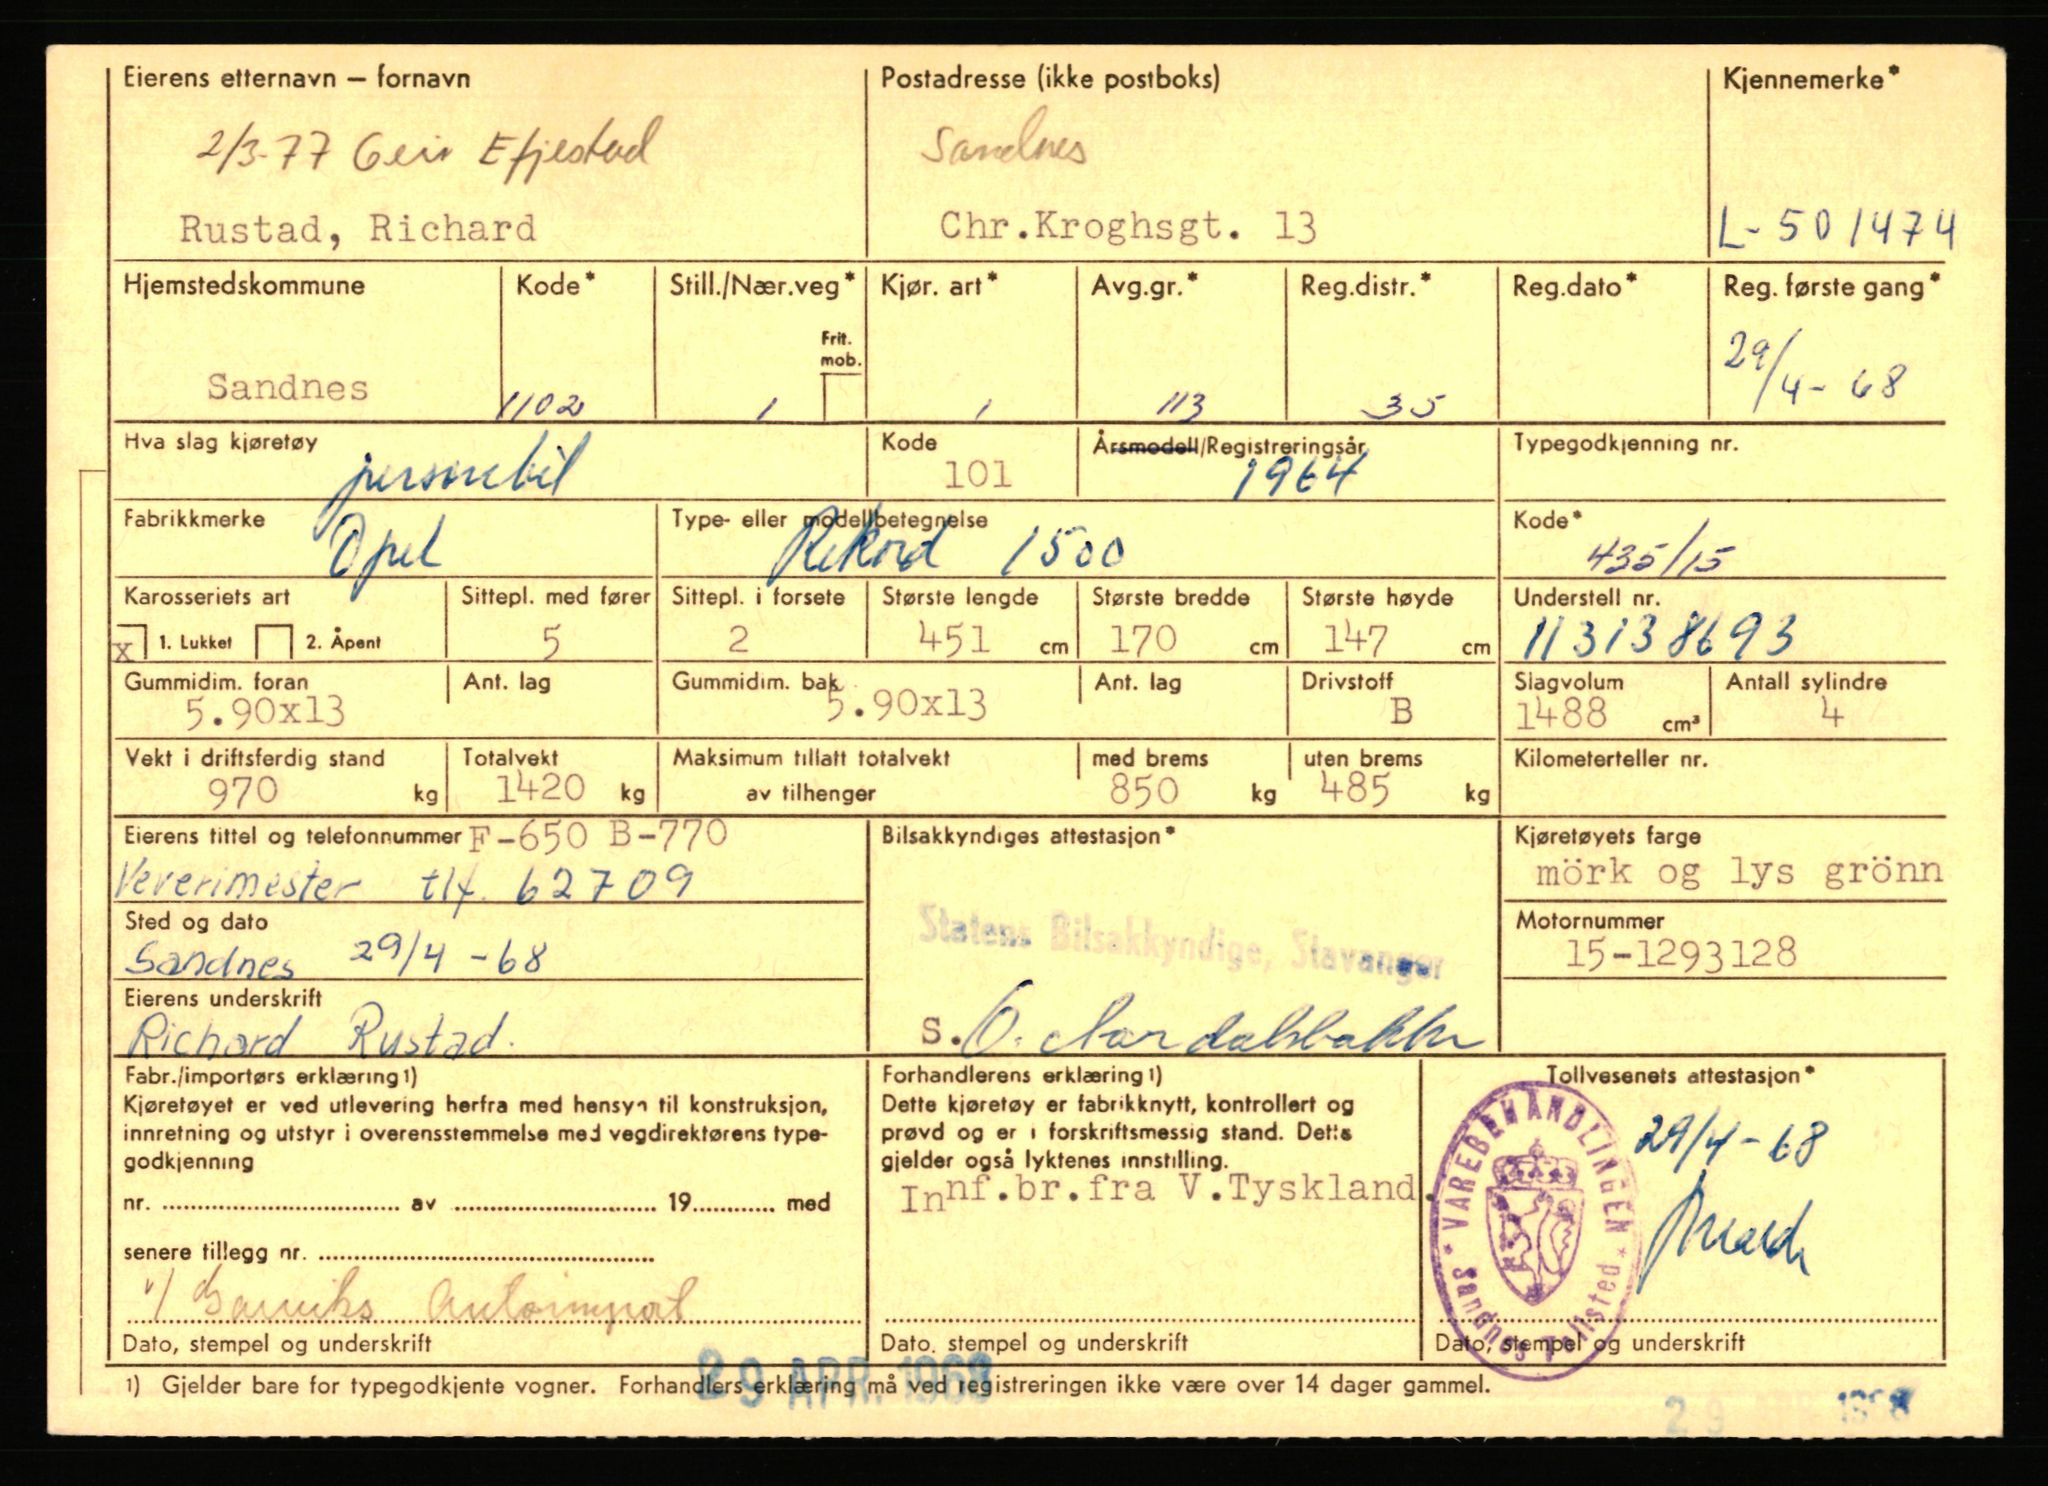 Eierens etternavn — fornavn
Postadresse (ikke postboks)
Kjennemerke*
2/3-77 Geir Efjestad
Sandnes
Rustad, Richard
Chr.Kroghsgt. 13
L-501474
Hjemstedskommune
Kode*
Still./Nær.veg*
Kjør. art*
Avg.gr.*
Reg.distr.*
Reg.dato*
Reg. første gang*
Frit.
mob.
29/4-68
Sandnes
1102
1
1
113
35
Hva slag kjøretøy
personbil
Kode
101
Årsmodell/Registreringsår
1964
Typegodkjenning nr.
Fabrikkmerke
Opel
Type- eller modellbetegnelse
Rekord 1500
Kode*
435/15
Karosseriets art
x 1. Lukket 2. Åpent
Sittepl. med fører
5
Sittepl. i forsete
2
Største lengde
451 cm
Største bredde
170 cm
Største høyde
147 cm
Understell nr.
113138693
Gummidim. foran
5.90x13
Ant. lag
Gummidim. bak
5.90x13
Ant. lag
Drivstoff
B
Slagvolum
1488 cm³
Antall sylindre
4
Vekt i driftsferdig stand
970 kg
Totalvekt
1420 kg
Maksimum tillatt totalvekt
av tilhenger
med brems
850 kg
uten brems
485 kg
Kilometerteller nr.
Eierens tittel og telefonnummer F-650 B-770
Veverimester tlf. 62709
Bilsakkyndiges attestasjon*
Kjøretøyets farge
mörk og lys grönn
Sted og dato
Sandnes 29/4-68
Statens Bilsakkyndige, Stavanger
Motornummer
15-1293128
Eierens underskrift
Richard Rustad.
S.
Fabr./importørs erklæring 1)
Kjøretøyet er ved utlevering herfra med hensyn til konstruksjon,
innretning og utstyr i overensstemmelse med vegdirektørens type-
godkjenning
nr. av 19 med
senere tillegg nr.
Autoimport
Dato, stempel og underskrift
Forhandlerens erklæring 1)
Dette kjøretøy er fabrikknytt, kontrollert og
prøvd og er i forskriftsmessig stand. Dette
gjelder også lyktenes innstilling.
Innf.br.fra V.Tyskland.
Dato, stempel og underskrift
Tollvesenets attestasjon*
29/4-68
VAREBEHANDLINGEN
Sandnes Tollsted
Dato, stempel og underskrift
29 APR. 1968
1) Gjelder bare for typegodkjente vogner. Forhandlers erklæring må ved registreringen ikke være over 14 dager gammel.
29 APR 1968